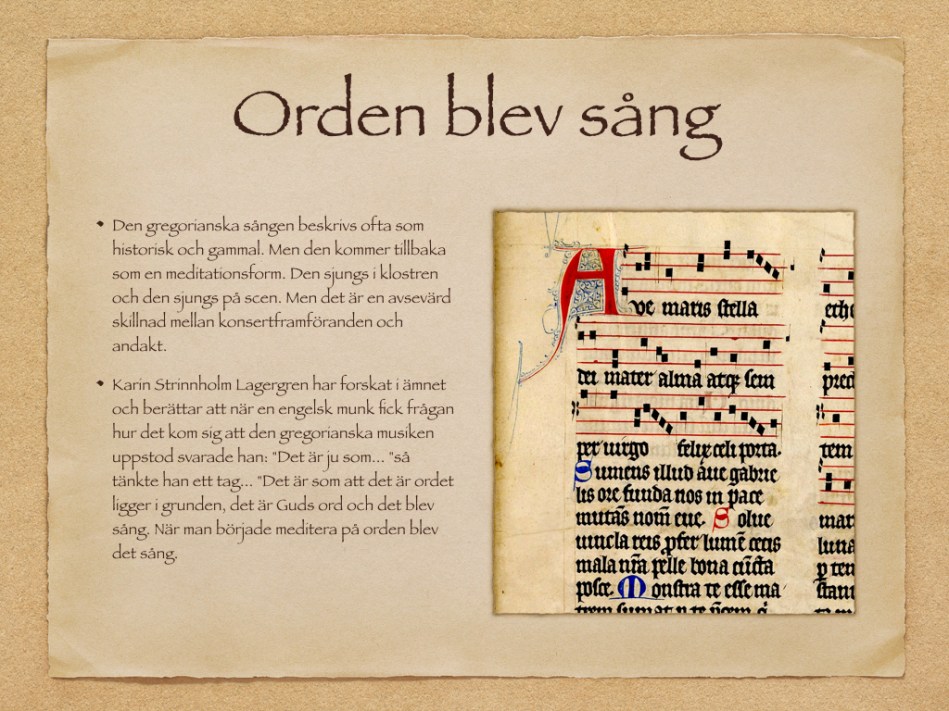 Orden blev sång
Den gregorianska sången beskrivs ofta som
historisk och gammal. Men den kommer tillbaka
som en meditationsform. Den sjungs i klostren
och den sjungs på scen. Men det är en avsevärd
skillnad mellan konsertframföranden och
andakt.
Karin Strinnholm Lagergren har forskat i ämnet
och berättar att när en engelsk munk fick frågan
hur det kom sig att den gregorianska musiken
uppstod svarade han: "Det är ju som... "så
tänkte han ett tag... "Det är som att det är ordet
ligger i grunden, det är Guds ord och det blev
sång. När man började meditera på orden blev
det sång.
Ave maris stella
dei mater alma atq; sem
per uirgo felix celi porta.
Sumens illud aue gabrie
lis ore funda nos in pace
mutãs nom̃ eue. Solue
uincla reis lumẽ cecis
mala pelle bona cũcta
posce. Monstra te esse ma
trem sumat